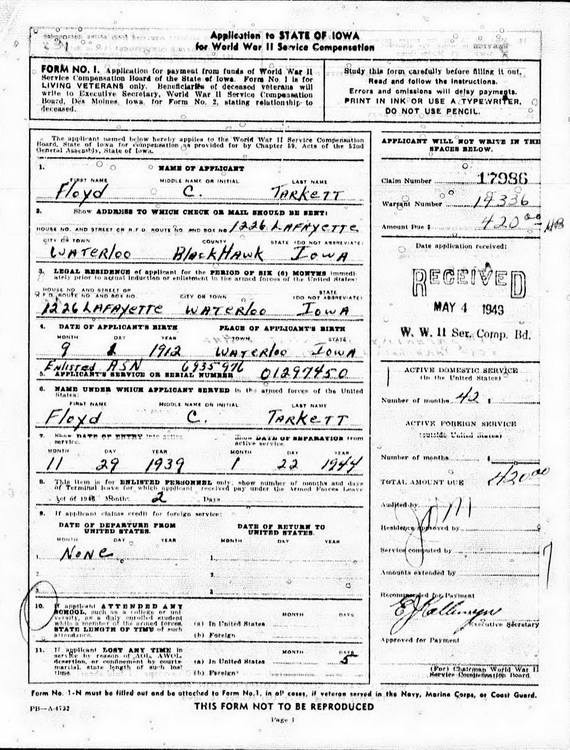 Application to STATE OF IOWA
for World War II Service Compensation
FORM NO. 1. Application for payment from funds of World War II
Service Compensation Board of the State of Iowa. Form No. 1 is for
LIVING VETERANS only. Beneficiaries of deceased veterans will
write to Executive Secretary, World War II Service Compensation
Board, Des Moines, Iowa, for Form No. 2, stating relationship to
deceased.
Study this form carefully before filling it out.
Read and follow the instructions.
Errors and omissions will delay payments.
PRINT IN INK OR USE A TYPEWRITER.
DO NOT USE PENCIL.
The applicant named below hereby applies to the World War II Service Compensation
Board, State of Iowa for compensation as provided for by Chapter 59, Acts of the 52nd
General Assembly, State of Iowa.
1. NAME OF APPLICANT
FIRST NAME MIDDLE NAME OR INITIAL LAST NAME
Floyd C. TARKETT
2. Show ADDRESS TO WHICH CHECK OR MAIL SHOULD BE SENT:
HOUSE NO. AND STREET OR R.F.D. ROUTE NO. AND BOX NO. 1226 LAFAYETTE
CITY OR TOWN COUNTY STATE (DO NOT ABBREVIATE)
WATERLOO BLACKHAWK IOWA
3. LEGAL RESIDENCE of applicant for the PERIOD OF SIX (6) MONTHS immedi-
ately prior to actual induction or enlistment in the armed forces of the United States:
HOUSE NO. AND STREET OR
R.F.D. ROUTE NO. AND BOX NO. CITY OR TOWN STATE
(DO NOT ABBREVIATE)
1226 LAFAYETTE WATERLOO IOWA
4. DATE OF APPLICANT'S BIRTH PLACE OF APPLICANT'S BIRTH
MONTH DAY YEAR TOWN STATE
9 1912 WATERLOO IOWA
Enlisted ASN 6935976
5. APPLICANT'S SERVICE OR SERIAL NUMBER 01297450
6. NAME UNDER WHICH APPLICANT SERVED in the armed forces of the United
States:
FIRST NAME MIDDLE NAME OR INITIAL LAST NAME
Floyd C. TARKETT
7. Show DATE OF ENTRY into active
service. Show DATE OF SEPARATION from
active service.
MONTH DAY YEAR MONTH DAY YEAR
11 29 1939 1 22 1944
8. This item is for ENLISTED PERSONNEL only, show number of months and days
of Terminal leave for which applicant received pay under the Armed Forces Leave
Act of 1946 Months 2 Days
9. If applicant claims credit for foreign service:
DATE OF DEPARTURE FROM
UNITED STATES. DATE OF RETURN TO
UNITED STATES.
MONTH DAY YEAR MONTH DAY YEAR
1. NONE 1.
2. 2.
3. 3.
10. If applicant ATTENDED ANY
SCHOOL, such as a college or uni-
versity, as a daily enrolled student
while a member of the armed forces,
STATE LENGTH OF TIME of such
attendance.
MONTH DAYS
(a) In United States
(b) Foreign
11. If applicant LOST ANY TIME in
service by reason of AOL, AWOL,
desertion, or confinement by courts-
martial, state length of such lost
time
MONTH DAYS
(a) In United States 5
(b) Foreign
APPLICANT WILL NOT WRITE IN THE
SPACES BELOW.
Claim Number 17986
Warrant Number 14336
Amount Due $ 420.00
Date application received:
RECEIVED
MAY 4 1949
W. W. II Ser. Comp. Bd.
ACTIVE DOMESTIC SERVICE
(in the United States)
Number of months 42 $
ACTIVE FOREIGN SERVICE
(outside United States)
Number of months $
TOTAL AMOUNT DUE 420.00
Audited by
Residence approved by
Service computed by
Amounts extended by
Recommended for Payment
Executive Secretary
Approved for Payment
(For) Chairman World War II
Service Compensation Board
Form No. 1-N must be filled out and be attached to Form No. 1, in all cases, if veteran served in the Navy, Marine Corps, or Coast Guard.
PB-A-4732 THIS FORM NOT TO BE REPRODUCED
Page 1